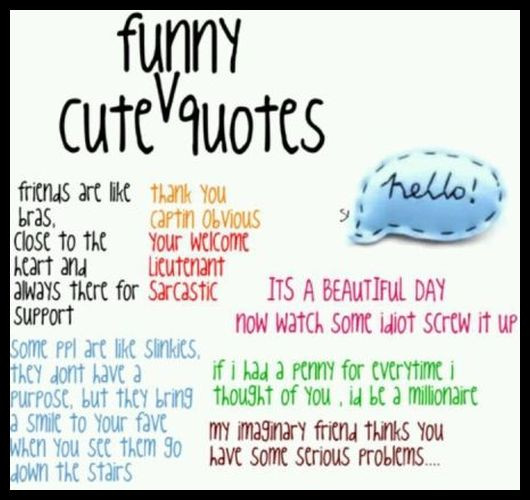 funny
cute v quotes
hello!
friends are like
bras,
close to the
heart and
always there for
support
thank you
captin obvious
your welcome
Lieutenant
Sarcastic
ITS A BEAUTIFUL DAY
now watch some idiot screw it up
some ppl are like slinkies,
they dont have a
purpose, but they bring
a smile to your fave
when you see them go
down the stairs
if i had a penny for everytime i
thought of you , id be a millionaire
my imaginary friend thinks you
have some serious problems....